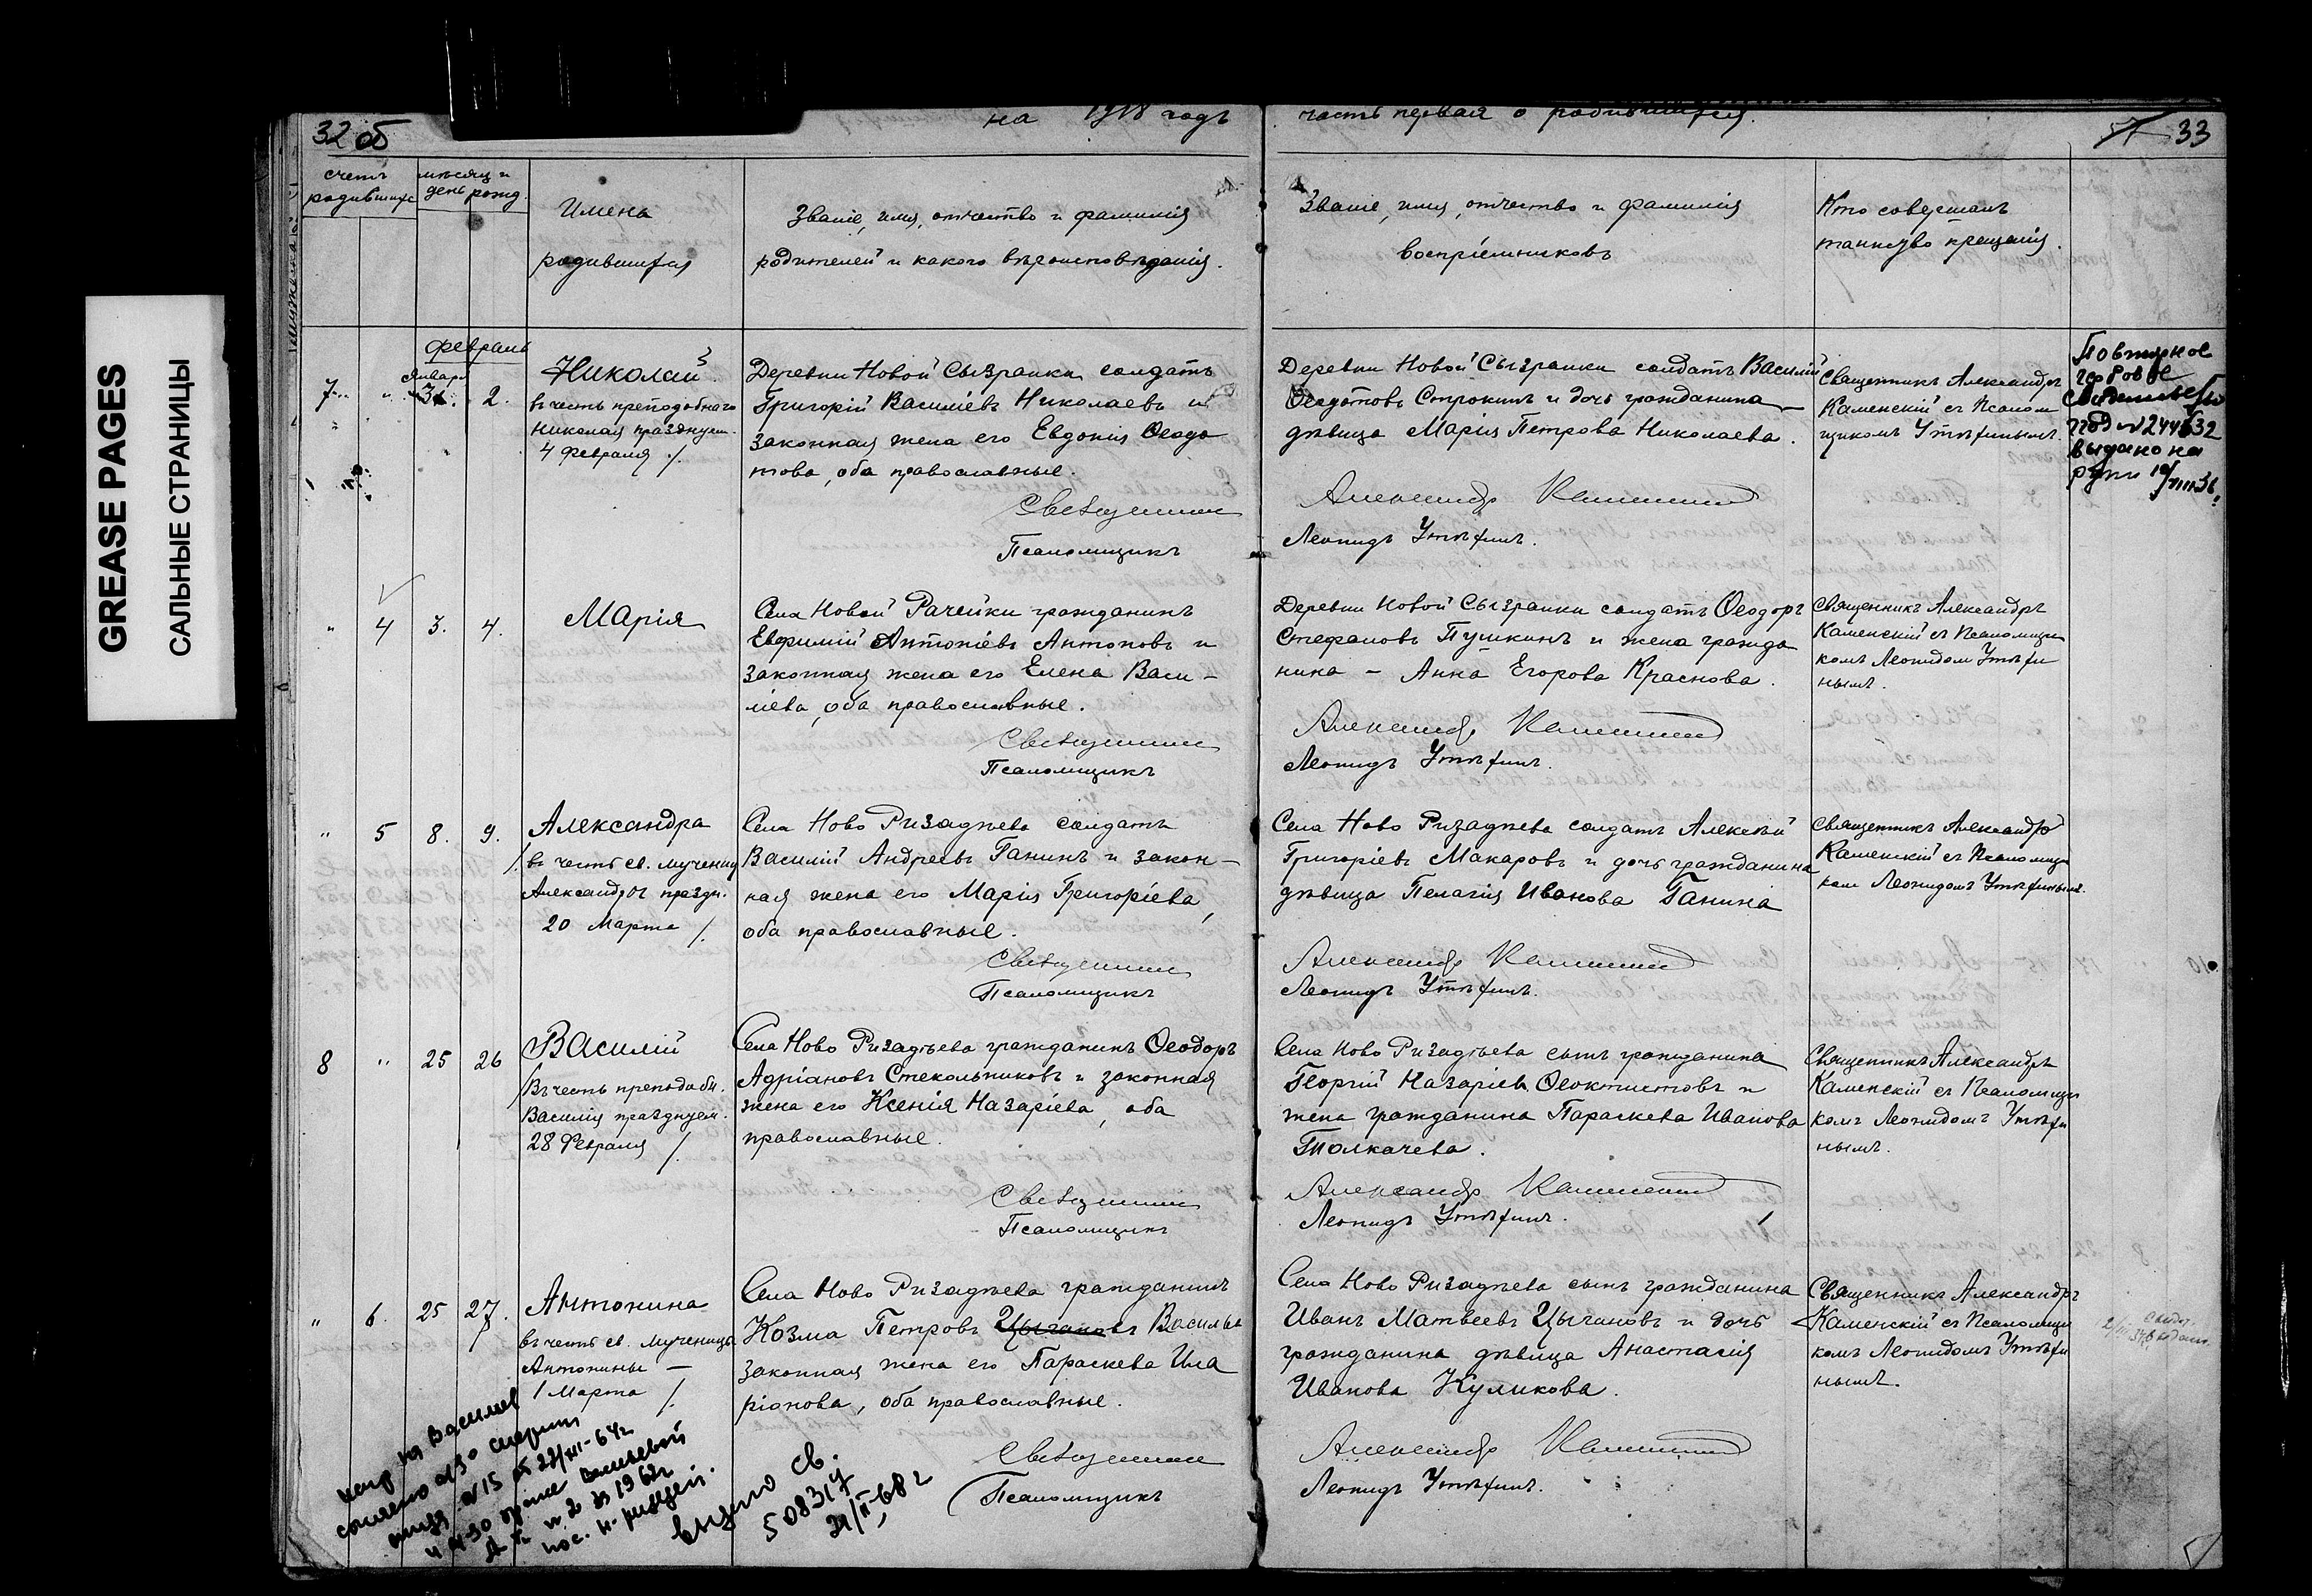 GREASE PAGES
САЛЬНЫЕ СТРАНИЦЫ
32 об
на 1918 годъ
часть первая о родившихся.
33
счетъ
родившихся
мѣсяц и
день рожд.
Имена
родившихся
Званіе, имя, отчество и фамилія
родителей и какого вѣроисповѣданія.
Званіе, имя, отчество и фамилія
воспріемниковъ
Кто совершалъ
таинство крещенія.
Февраль
Января
7 " 31. 2.
Николай
въ честь преподобнаго
Николая празднуем.
4 Февраля /.
Деревни Новой Сызранки солдатъ
Григорій Василіевъ Николаевъ и
законная жена его Евдокія Ѳеодо
това, оба православные.
Священник
Псаломщикъ
Деревни Новой Сызранки солдатъ Василій
Ѳеодотовъ Строкинъ и дочь гражданина
дѣвица Марія Петрова Николаева.
Александр Каменский
Леонидъ Утѣхинъ.
Священникъ Александръ
Каменскій съ Псалом
щикомъ Утѣхинымъ.
Повторное
гербовое
Свидетельство
под №244632
выдано на
руки 19/VIII 36.
" 4 3. 4.
Марія
Села Новой Рачейки гражданинъ
Евфимій Антоніевъ Антоновъ и
законная жена его Елена Васи-
ліева, оба православные.
Священник
Псаломщикъ
Деревни Новой Сызранки солдатъ Ѳеодоръ
Стефановъ Пушкинъ и жена гражда
нина - Анна Егорова Краснова.
Александр Каменский
Леонидъ Утѣхинъ.
Священникъ Александръ
Каменскій съ Псаломщи
комъ Леонидом Утѣхи
нымъ.
" 5 8. 9.
Александра
/. въ честь св. мучениц
Александры праздн.
20 Марта /.
Села Ново Ризадѣева солдатъ
Василій Андреевъ Ганинъ и закон-
ная жена его Марія Григоріева,
оба православные.
Священник
Псаломщикъ
Села Ново Ризадѣева солдатъ Алексѣй
Григоріевъ Макаровъ и дочь гражданина
дѣвица Пелагія Иванова Ганина
Александр Каменский
Леонидъ Утѣхинъ.
Священникъ Александръ
Каменскій съ Псаломщи
ком Леонидомъ Утѣхинымъ.
8 " 25 26
Василій
/Въ честь преподобн.
Василія празднуем.
28 Февраля /.
Села Ново Ризадѣева гражданинъ Ѳеодоръ
Адріановъ Стекольниковъ и законная
жена его Ксенія Назаріева, оба
православные.
Священник
Псаломщикъ
Села Ново Ризадѣева сынъ гражданина
Георгій Назаріевъ Ѳеоктистовъ и
жена гражданина Параскева Иванова
Толкачева.
Александр Каменский
Леонидъ Утѣхинъ.
Священникъ Александръ
Каменскій съ Псаломщи
комъ Леонидомъ Утѣхи
нымъ.
" 6. 25 27.
Антонина
въ честь св. мученицы
Антонины -
1 Марта /.
Села Ново Ризадѣева гражданинъ
Козма Петровъ Цыгановъ Васильев
законная жена его Параскева Ила
ріонова, оба православные.
Священник
Псаломщикъ
Села Ново Ризадѣева сынъ гражданина
Иванъ Матвеевъ Цыгановъ и дочь
гражданина дѣвица Анастасія
Иванова Куликова.
Александр Каменский
Леонидъ Утѣхинъ.
Священникъ Александръ
Каменскій съ Псаломщи
комъ Леонидомъ Утѣхи
нымъ.
на Васильев
№15 от 22/VII-64г
и браке Васильевой
№ 2 за 1962г
пос. н-ризадей.
выдано св.
508317
21/II-68 г